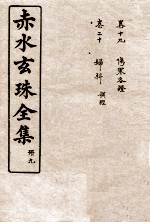 卷十九 傷寒各證
卷二十 婦科 調經
赤水玄珠全集
卅九